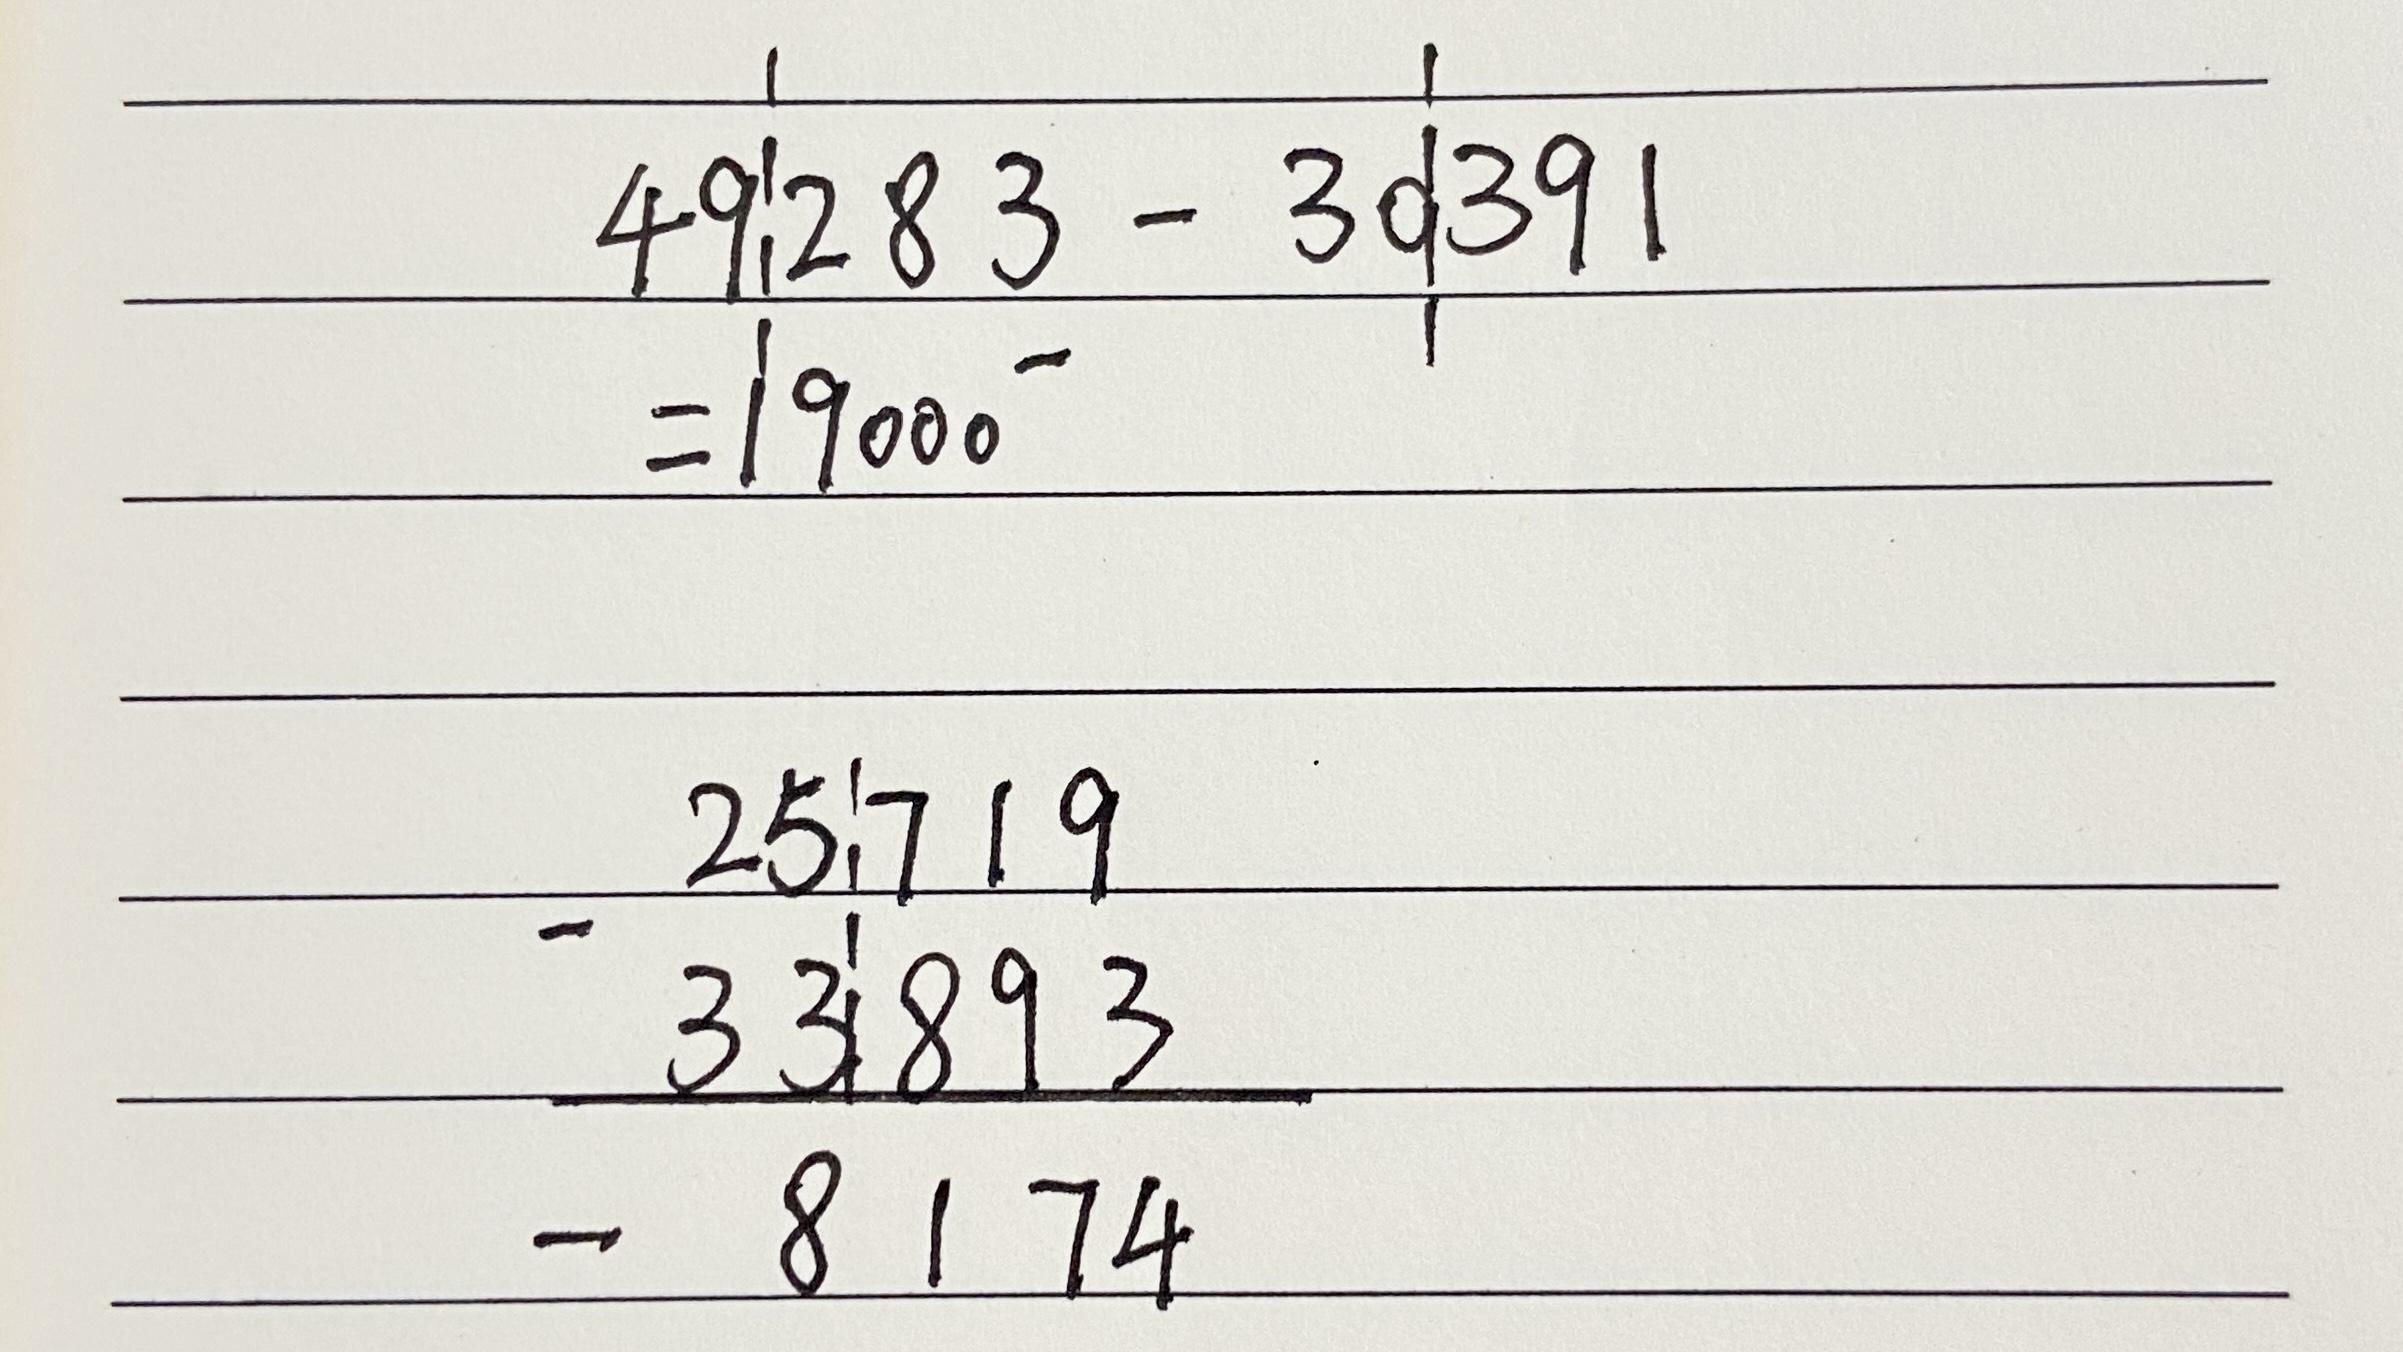 49¦283 - 30¦391
= 19000⁻
25¦719
- 33¦893
- 8174